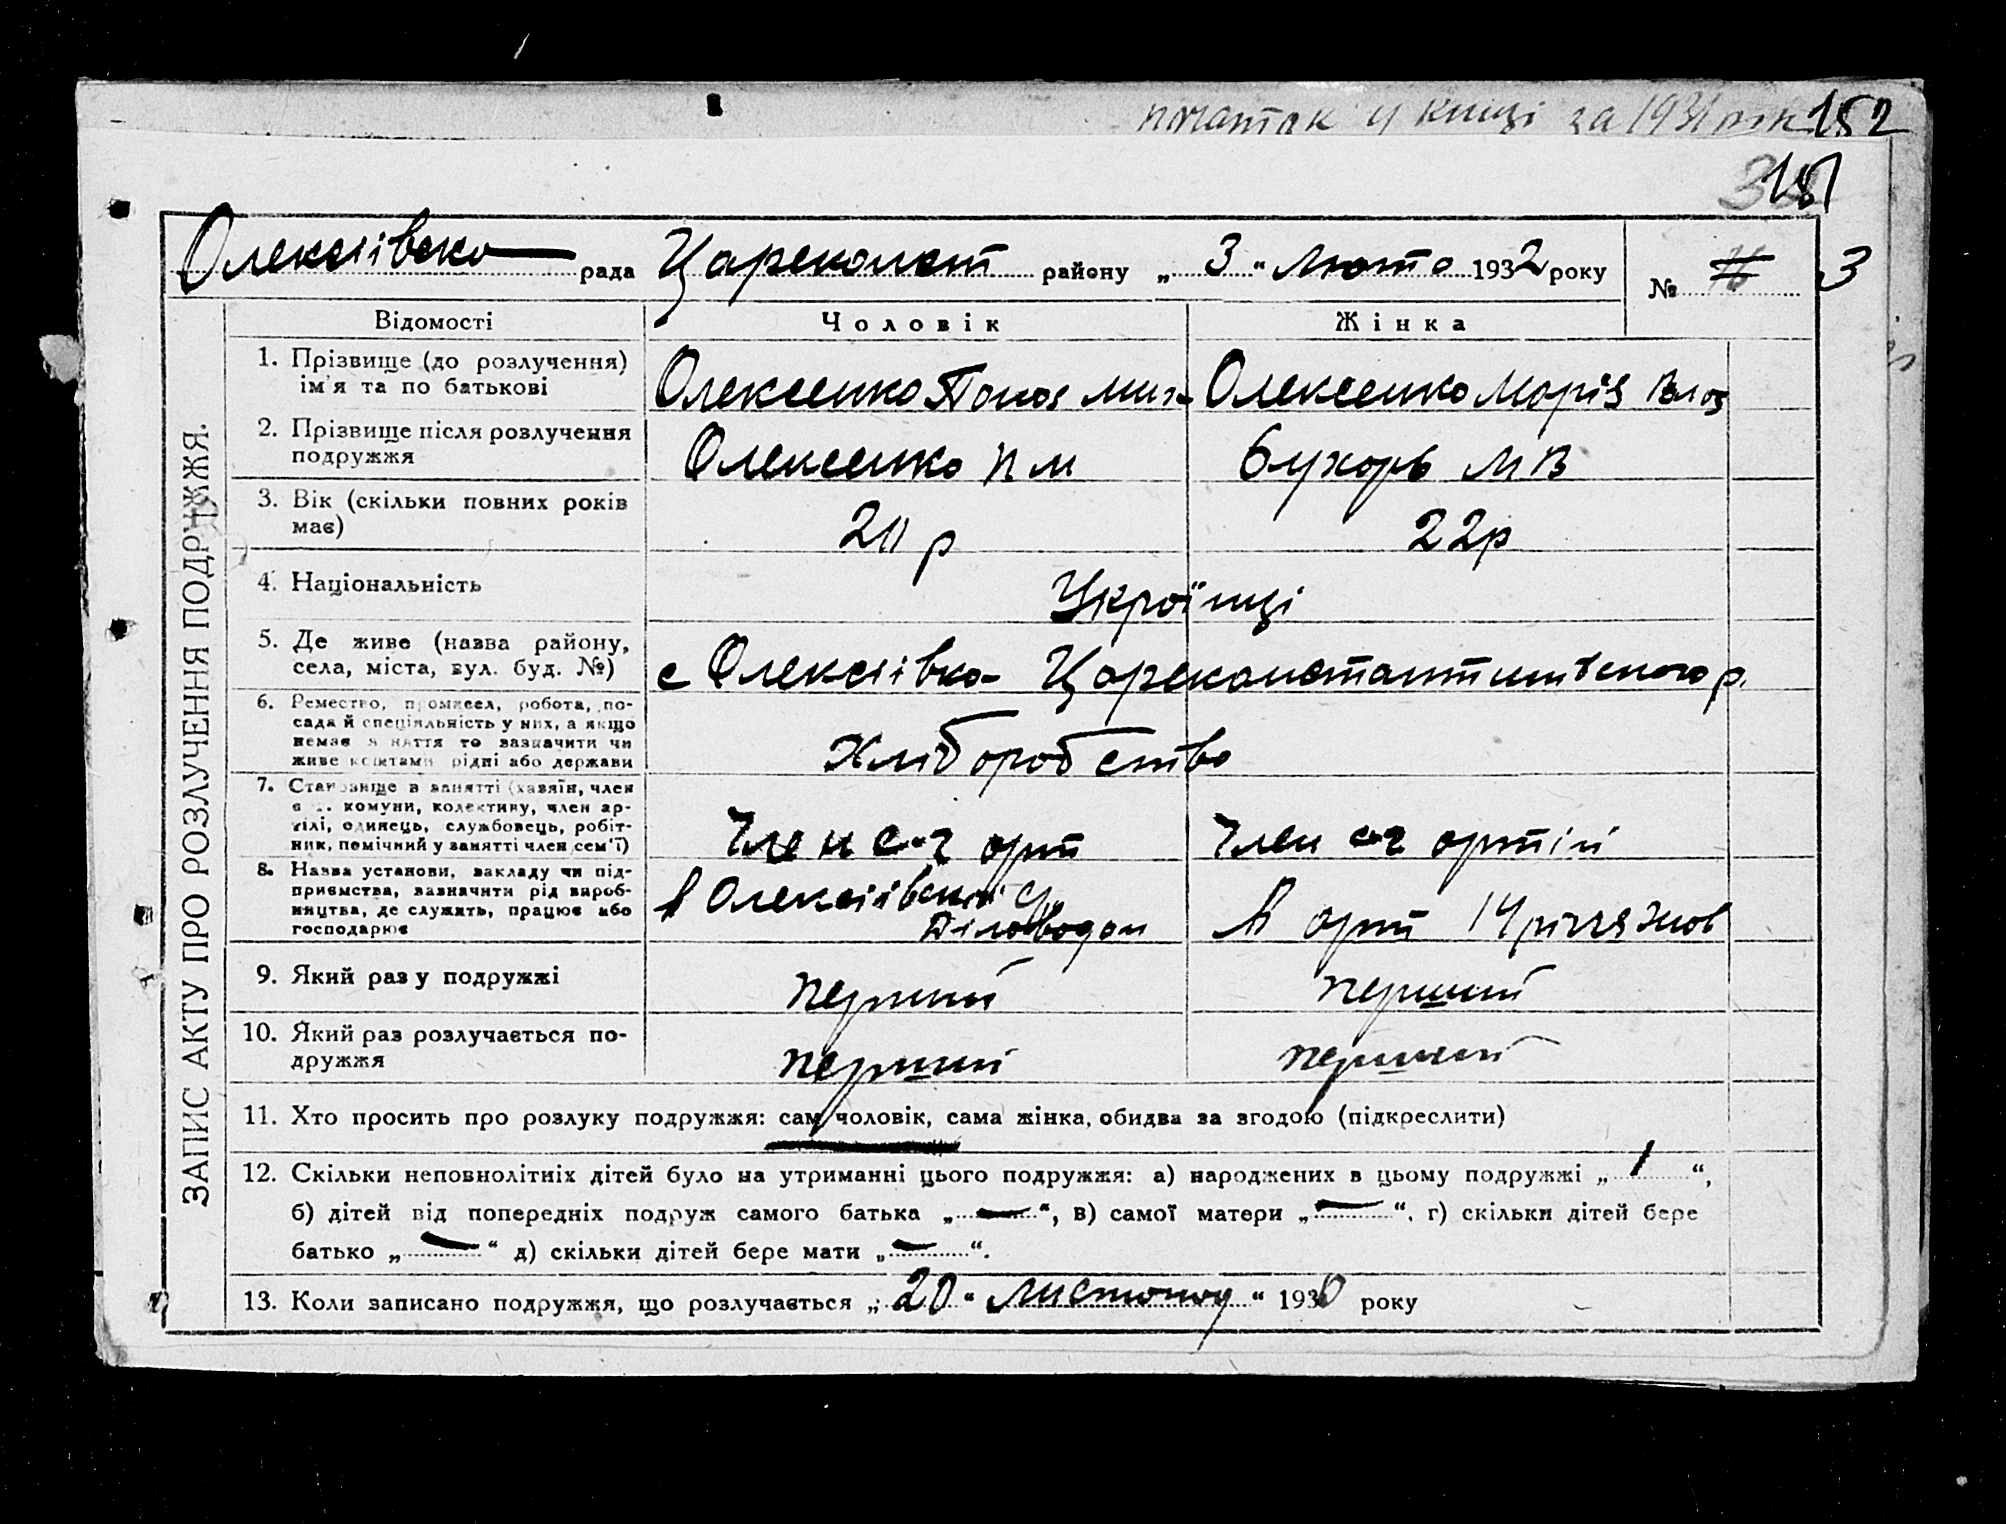 початок у книзі за 1931 рік 152
151
Олексіївсько рада Цареконст району „ 3 “ Люто 1932 року № 3
Відомості Чоловік Жінка
1. Прізвище (до розлучення) ім'я та по батькові Олексенко Понос Мих Олексенко Марія Влас
2. Прізвище після розлучення подружжя Олексенко П М Бухорь М В
3. Вік (скільки повних років має) 20 р 22 р
4. Національність Українці
5. Де живе (назва району, села, міста, вул. буд. №) с Олексіівка Цареконстантинівського р.
6. Ремество, промисел, робота, посада й спеціяльність у них, а якщо немає заняття то зазначити чи живе коштами рідні або держави Хліборобство
7. Становище в занятті (хазяїн, член с.-г. комуни, колективу, член артілі, одинець, службовець, робітник, помічний у занятті член сем'ї) Член с-г арт Член с-г артілі
8. Назва установи, закладу чи підприємства, зазначити рід виробництва, де служить, працює або господарює в Олексіївській с/р Діловодом В арт 14 річчя Жов
9. Який раз у подружжі перший перший
10. Який раз розлучається подружжя перший перший
11. Хто просить про розлуку подружжя: сам чоловік, сама жінка, обидва за згодою (підкреслити)
12. Скільки неповнолітніх дітей було на утриманні цього подружжя: а) народжених в цьому подружжі „ 1 “,
б) дітей від попередніх подруж самого батька „ — “, в) самої матери „ — “. г) скільки дітей бере
батько „ — “ д) скільки дітей бере мати „ — “.
13. Коли записано подружжя, що розлучається „ 20 “ Листопод “ 1930 року
ЗАПИС АКТУ ПРО РОЗЛУЧЕННЯ ПОДРУЖЖЯ.